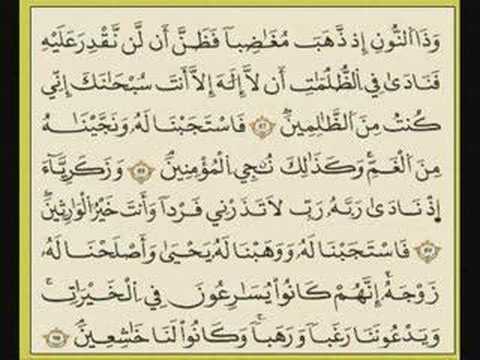 وَذَا ٱلنُّونِ إِذ ذَّهَبَ مُغَـٰضِبًا فَظَنَّ أَن لَّن نَّقْدِرَ عَلَيْهِ
فَنَادَىٰ فِي ٱلظُّلُمَـٰتِ أَن لَّآ إِلَـٰهَ إِلَّآ أَنتَ سُبْحَـٰنَكَ إِنِّي
كُنتُ مِنَ ٱلظَّـٰلِمِينَ ٨٧ فَٱسْتَجَبْنَا لَهُۥ وَنَجَّيْنَـٰهُ
مِنَ ٱلْغَمِّ ۚ وَكَذَٰلِكَ نُـۨجِي ٱلْمُؤْمِنِينَ ٨٨ وَزَكَرِيَّآءَ
إِذْ نَادَىٰ رَبَّهُۥ رَبِّ لَا تَذَرْنِي فَرْدًا وَأَنتَ خَيْرُ ٱلْوَٰرِثِينَ
٨٩ فَٱسْتَجَبْنَا لَهُۥ وَوَهَبْنَا لَهُۥ يَحْيَىٰ وَأَصْلَحْنَا لَهُۥ
زَوْجَهُۥٓ ۚ إِنَّهُمْ كَانُوا۟ يُسَـٰرِعُونَ فِي ٱلْخَيْرَٰتِ
وَيَدْعُونَنَا رَغَبًا وَرَهَبًا ۖ وَكَانُوا۟ لَنَا خَـٰشِعِينَ ٩٠